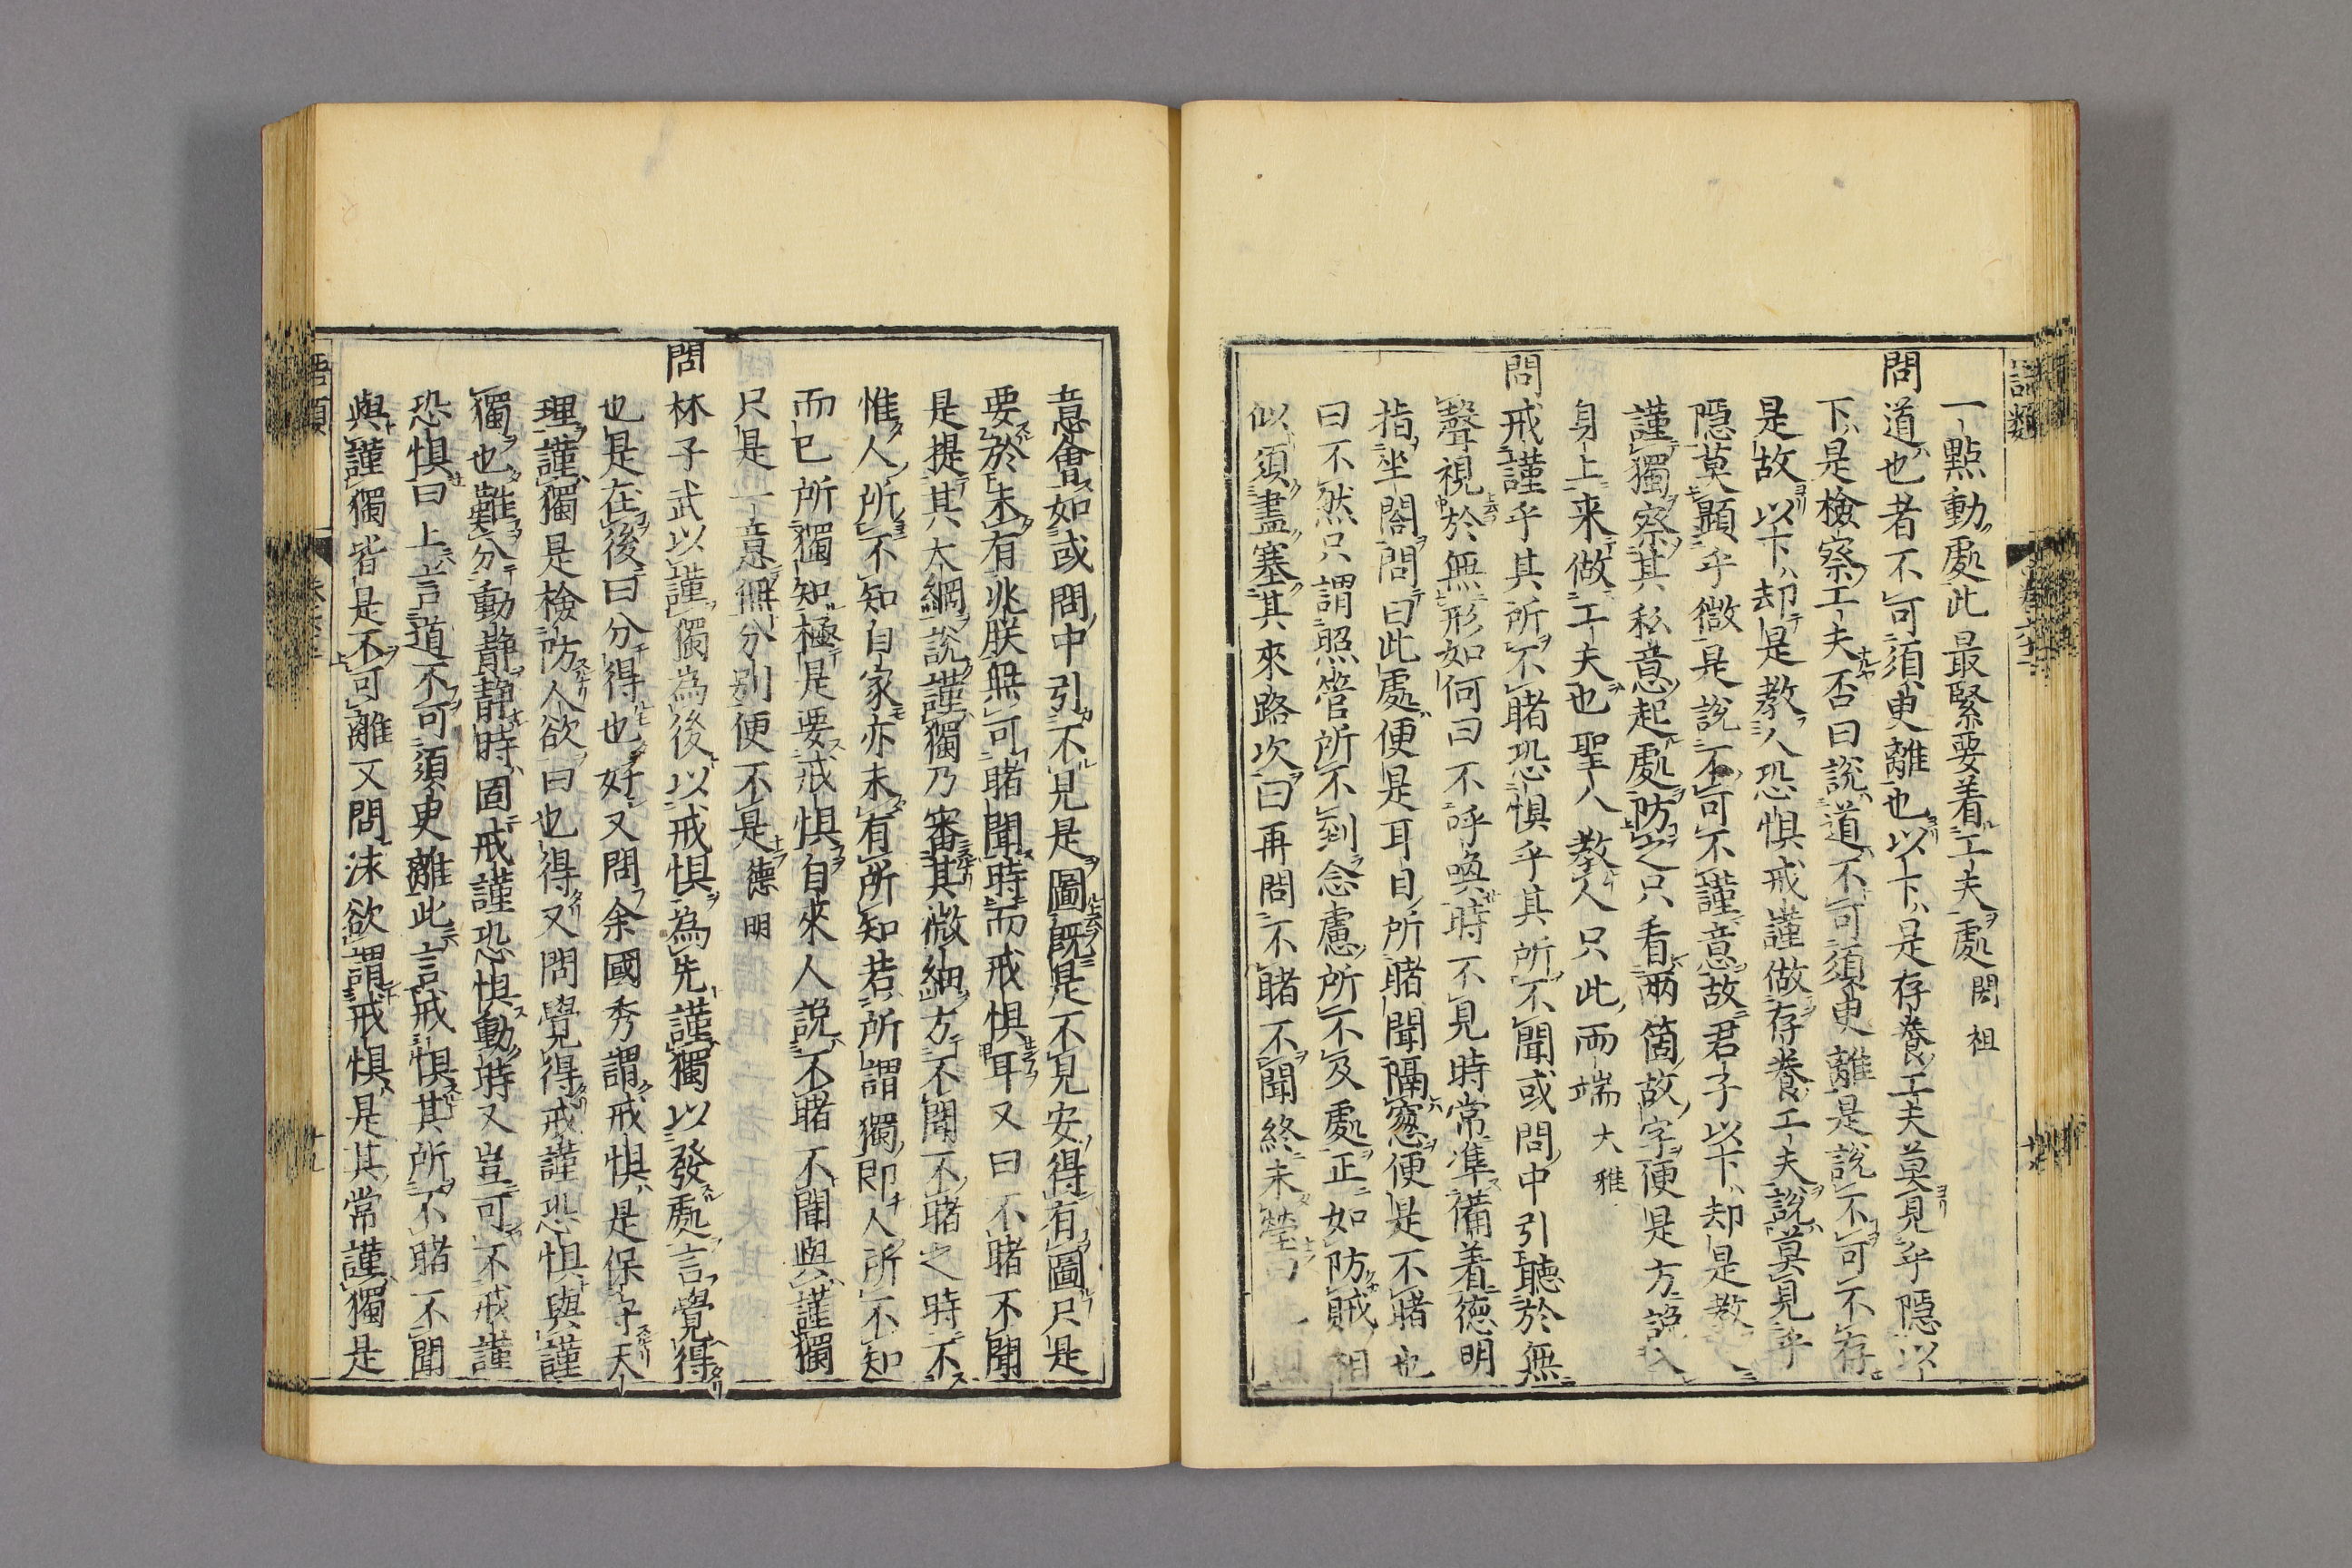 一點動處此最緊要着工夫處閎祖
問道也者不可須臾離也以下是存養工夫莫見乎隱以
下是檢察工夫否曰說道不可須臾離是說不可不存
是故以下却是教人恐惧戒謹做存養工夫說莫見乎
隱莫顯乎微是說不可不謹意故君子以下却是教人
謹獨察其私意起處防之只看兩箇故字便是方說入
身上来做工夫也聖人教人只此兩端大雅
問戒謹乎其所不睹恐惧乎其所不聞或問中引聽於無
聲視於無形如何曰不呼喚時不見時常準備着德明
指坐閤問曰此處便是耳目所睹聞隔窓便是不睹也
曰不然只謂照管所不到念慮所不及處正如防賊相
似須盡塞其來路次日再問不睹不聞終未瑩曰
意會如或問中引不見是圖既是不見安得有圖只是
要於未有兆朕無可睹聞時而戒惧耳又曰不睹不聞
是提其大綱說謹獨乃審其微細方不聞不睹之時不
惟人所不知自家亦未有所知若所謂獨即人所不知
而已所獨知極是要戒惧自來人說不睹不聞與謹獨
只是一意無分別便不是德明
問林子武以謹獨為後以戒惧為先謹獨以發處言覺得
也是在後曰分得也好又問余國秀謂戒惧是保守天
理謹獨是檢防人欲曰也得又問覺得戒謹恐惧與謹
獨也難分動靜靜時固戒謹恐惧動時又豈可不戒謹
恐惧曰上言道不可須臾離此言戒惧其所不睹不聞
與謹獨皆是不可離又問泳欲謂戒惧是其常謹獨是